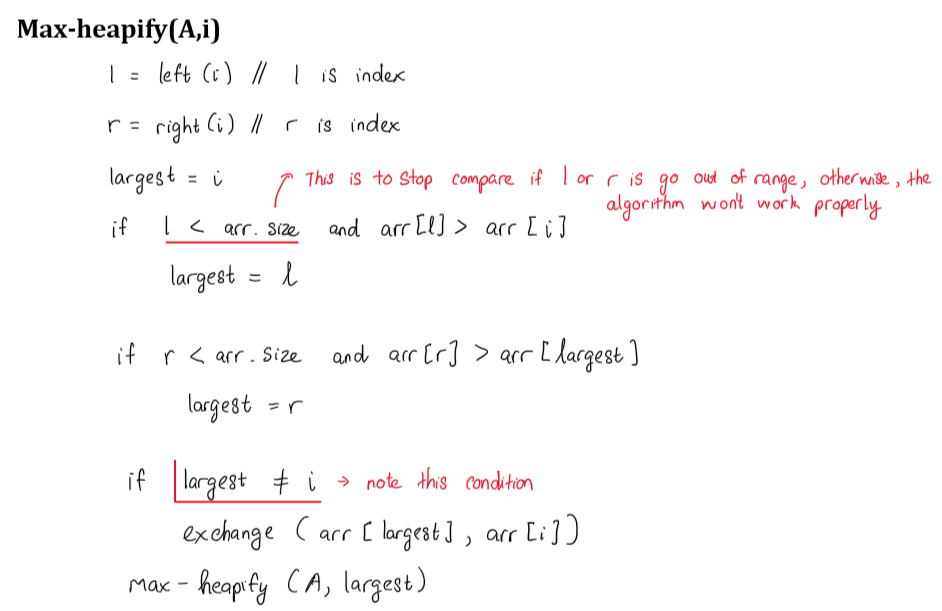 Max-heapify(A,i)
l = left (i) // l is index
r = right (i) // r is index
largest = i
This is to stop compare if l or r is go out of range, otherwise, the
algorithm won't work properly
if l < arr. size and arr[l] > arr [i]
largest = l
if r < arr. size and arr [r] > arr [largest]
largest = r
if largest ≠ i → note this condition
exchange ( arr [ largest] , arr [i])
max - heapify (A, largest)